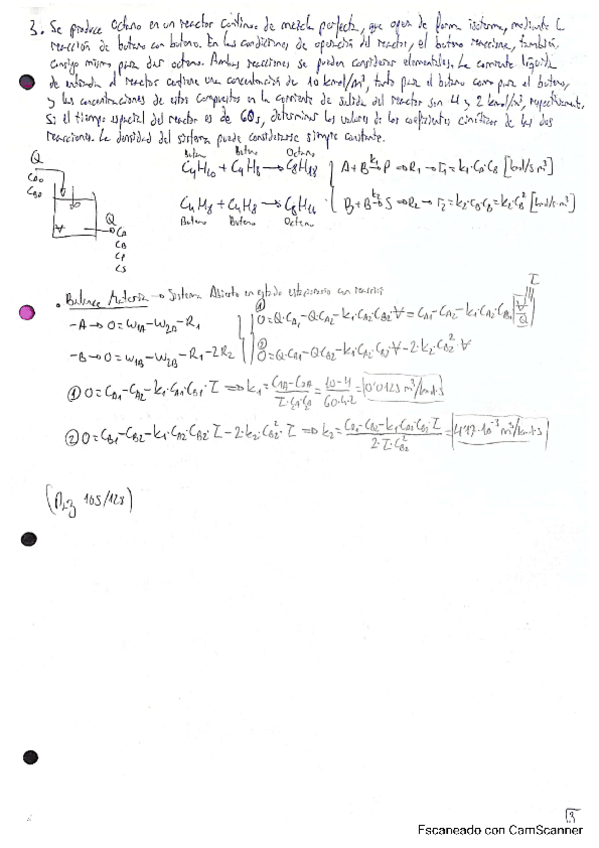 3. Se produce octano en un reactor continuo de mezcla perfecta, que opera de forma isoterma, mediante la
reacción de butano con buteno. En las condiciones de operación del reactor, el buteno reacciona, también,
consigo mismo para dar octeno. Ambas reacciones se pueden considerar elementales. La corriente líquida
de entrada al reactor contiene una concentración de 10 kmol/m³, tanto para el butano como para el buteno,
y las concentraciones de estos compuestos en la corriente de salida del reactor son 4 y 2 kmol/m³, respectivamente.
Si el tiempo espacial del reactor es de 60 s, determinar los valores de los coeficientes cinéticos de las dos
reacciones. La densidad del sistema puede considerarse siempre constante.
Q
CA0
CB0
Q
CA
CB
CP
CS
Butano Buteno Octano
C4H10 + C4H8 → C8H18
A + B →k1 P → R1 → r1 = k1·CA·CB [kmol/s·m³]
C4H8 + C4H8 → C8H16
Buteno Buteno Octeno
B + B →k2 S → R2 → r2 = k2·CB·CB = k2·CB² [kmol/s·m³]
• Balance Materia → Sistema Abierto en estado estacionario con reacción
-A → 0 = W1A - W2A - R1
① 0 = Q·CA1 - Q·CA2 - k1·CA2·CB2·V = CA1 - CA2 - k1·CA2·CB2 V/Q
-B → 0 = W1B - W2B - R1 - 2R2
② 0 = Q·CB1 - Q·CB2 - k1·CA2·CB2·V - 2·k2·CB2²·V
① 0 = CA1 - CA2 - k1· ·τ ⇒ k1 = = 10-4/60·4·2 = 0'0125 m³/kmol·s
② 0 = CB1 - CB2 - k1·CA2·CB2·τ - 2·k2·CB2²·τ ⇒ k2 = /2·τ·CB2² = 4'17·10⁻³ m³/kmol·s
105/128)
Escaneado con CamScanner